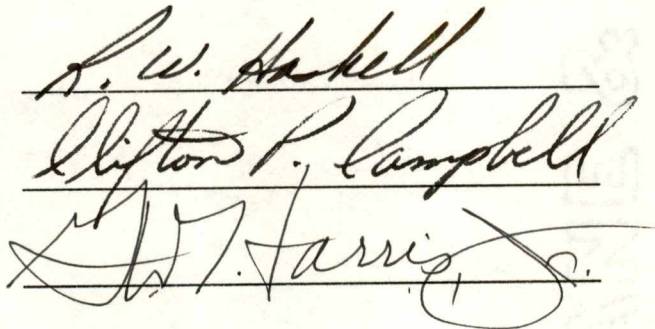 R. W. Haskell
Clifton P. Campbell
G. M. Harris, Jr.